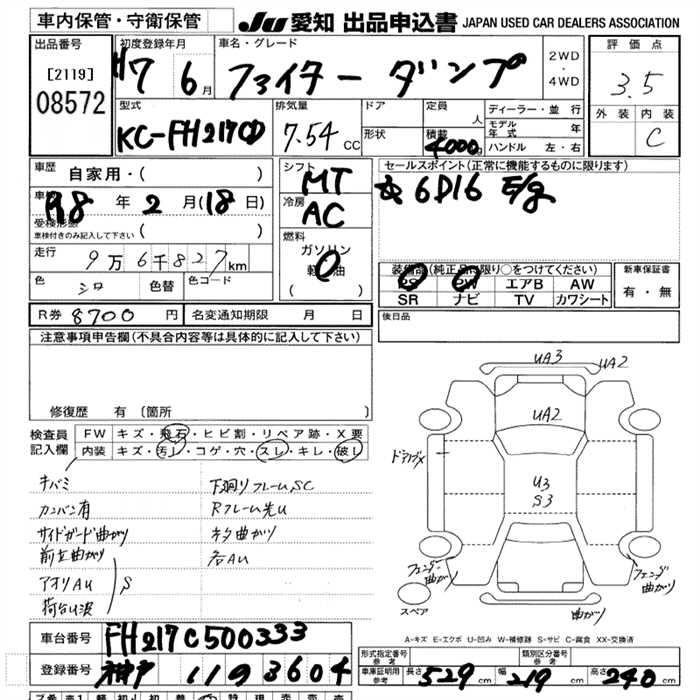 車内保管・守衛保管
JU 愛知 出品申込書 JAPAN USED CAR DEALERS ASSOCIATION
出品番号
[2119]
08572
初度登録年月
H7 6月
車名・グレード
ファイター ダンプ
2WD
・
4WD
評価点
3.5
外装 内装
C
型式
KC-FH217CD
排気量
7.54 CC
ドア
形状
定員 人
積載 4000
ディーラー・並行
モデル年式 年
ハンドル 左・右
車歴 自家用・( )
車検 R8年2月(18日)
受検形態
車検付きのみ記入して下さい ( )
走行 9万6千827km
色 シロ 色替 色コード
シフト MT
冷房 AC
燃料
ガソリン
軽油
( )
セールスポイント(正常に機能するものに限ります)
☆6D16 E/g
装備品(純正品に限り○をつけてください)
PS PW エアB AW
SR ナビ TV カワシート
新車保証書
有・無
R券 8700円 名変通知期限 月 日
後日品
注意事項申告欄(不具合内容等は具体的に記入して下さい)
修復歴 有(箇所
検査員記入欄
FW キズ・飛石・ヒビ割・リペア跡・X要
内装 キズ・汚レ・コゲ・穴・スレ・キレ・破レ
キバミ 下廻りフレームSC
カンバン有 Rフレーム先U
サイドガード曲がり ネタ曲がり
前立曲がり 各AU
アオリAU S
荷台U波
UA3
UA2
UA2
ドアバイザーX
U3
S3
フェンダー曲がり
フェンダー曲がり
スペア
曲がり
A-キズ E-エクボ U-凹み W-補修跡 S-サビ C-腐食 XX-交換済
車台番号 FH217C500333
登録番号 神戸 11 3604
形式指定番号 参考
類別区分番号 参考
車庫証明用参考 長さ529cm 幅219cm 高さ240cm